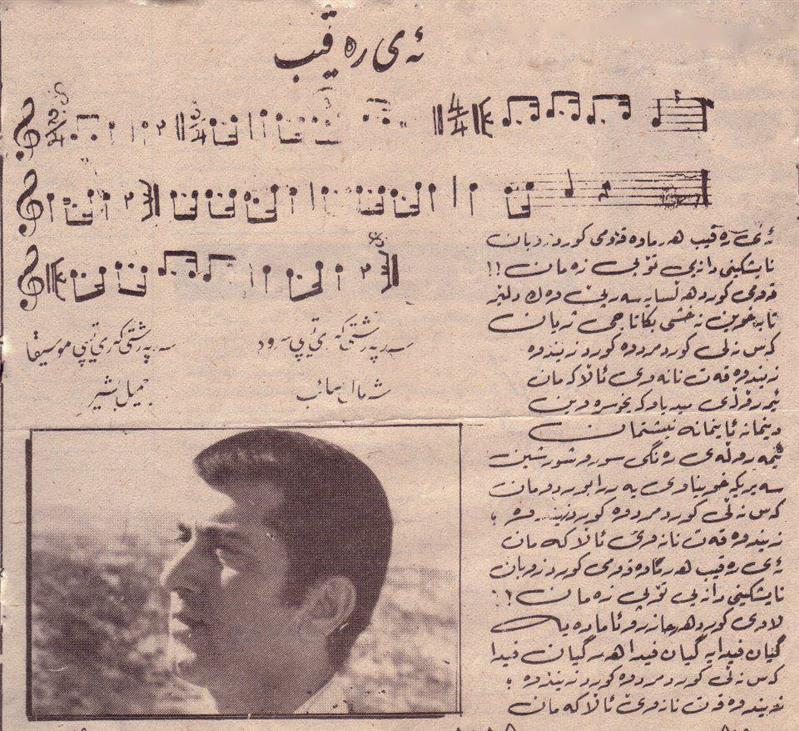 ئەی رەقیب
2/4
3/4
3
4/4
ئەی رەقیب هەرماوە قەومی کوردزوبان
نایشکێنی دانەیی تۆپی زەمان !!
قەومی کورد هەڵسایە سەرپێ وەک دلێر
تابەخوێن نەخشی بکا تاجی ژیان
کەس نەڵێ کوردمردوە کوردزیندوە
زیندوە قەت نانەوێ ئاڵاکەمان
ئێمە رۆڵەی میدیاوکەیخوسرەوین
دینمانە ئایینمانە نیشتمان
ئێمە رۆڵەی رەنگی سوروشۆرشین
سەیریکە خوێناوی یە رابوردومان
کەس نەڵێ کوردمردوە کوردزیندوە ؛
زیندوە قەت نانەوێ ئاڵاکەمان
ئەی رەقیب هەرماوە قەومی کوردزوبان
نایشکێنی دانەیی تۆپی زەمان !؟
لاوی کورد هەرحازروئامادەیە
گیان فیدایە گیان فیدا هەرگیان فیدا
کەس نەڵێ کوردمردوە کوردزیندوە ؛
زیندوە قەت نانەوێ ئاڵاکەمان
سەرپەرشتی کەری تیپی سرود
شەماڵ صائب
سەرپەرشتی کەری تیپی موسیقا
جمیل بشیر